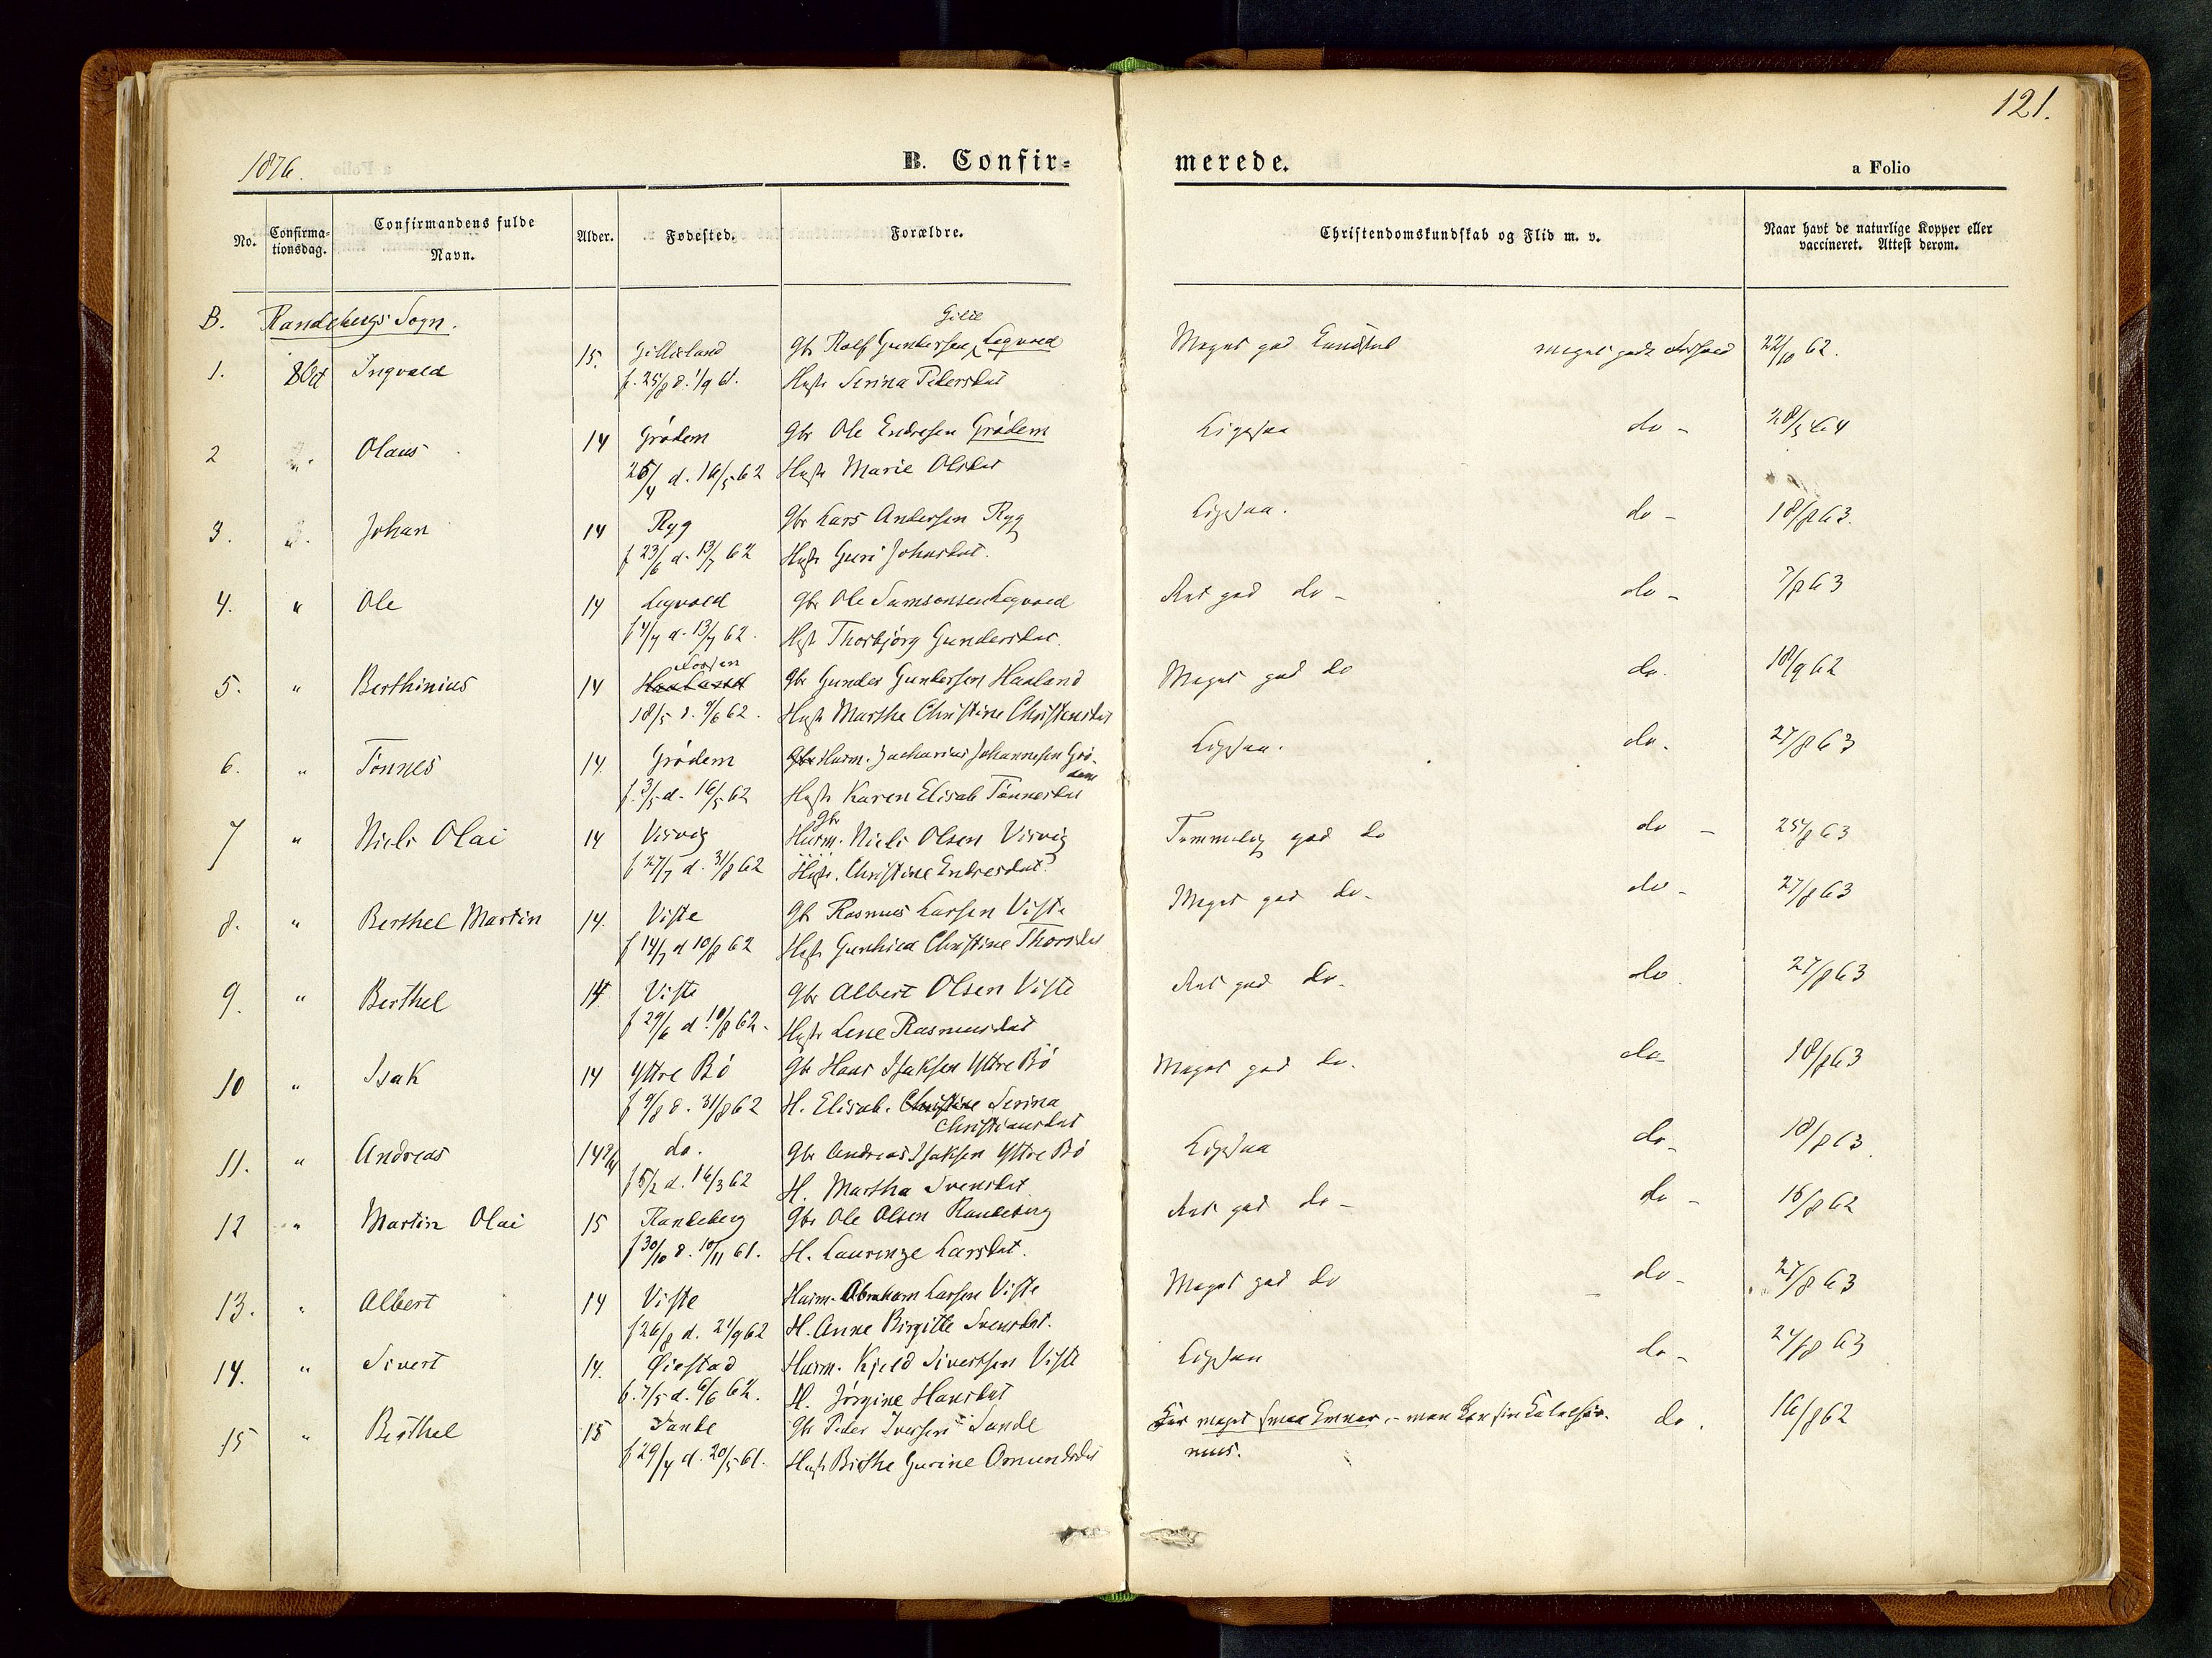 121.
1876.
B. Confir-
merede.
a Folio
No.
Confirma-
tionsdag.
Confirmandens fulde
Navn.
Alder.
Fødested.
Forældre.
Christendomskundskab og Flid m. v.
Naar havt de naturlige Kopper eller
vaccineret. Attest derom.
B. Randebergs Sogn.
1. 8 Oct Ingvald 15. Gbr Rolf Gundersen Legvold Meget god Kundskab 22/10 62.
f. 25/8 d. 1/9 61. Hust Serina Pedersdat
2 Olaus 14 Grødem Gbr Ole Endresen Grødem Ligesaa do -
25/4 d. 16/5 62 Hust Marie Olsdat
3. Johan 14 Ryg Gbr Lars Andersen Ryg Ligesaa. do - 18/8 63.
f 23/6 d. 13/7 62 Hust Guri Johnsdat.
4. " Ole 14 Legvold Gbr Ole Samsonsen Legvold god do - do - 7/8 63
d. 13/7 62. Hust Thorbjørg Gundersdat.
5. " Berthinius 14 Gbr Gunder Gundersen Haaland Meget god do do. 18/9 62
18/5 d. 9/6 62. Hust Marthe Christine Christensdat
6. " Tønnes 14. Grødem Husm. Zacharias Johannesen Grø-
dem Ligesaa. do. 27/8 63
f. 3/5 d. 16/5 62 Hust Karen Elisab Tønnesdat
7 " Niels Olai 14 Visvig Gbr
Husm. Niels Olsen Visvig Temmelig god do do - 25/8 63
f 27/7 d. 31/8 62 Hust. Christine Endresdat.
8. " Berthel Martin 14. Viste Gb Rasmus Larsen Viste Meget god do. do - 27/8 63
f 14/7 d 10/8 62 Hust Gunhild Christine Thorsdat
9. " Berthel 14. Viste Gbr Albert Olsen Viste god do. do. 27/8 63
f 29/6 d. 10/8 62. Hust Lene Rasmusdat
10 " Isak 14 Yttre Bø Gbr Hans Isaksen Yttre Bø Meget god do. do 18/8 63
f 9/8 d. 31/8 62 H. Elisab. Christine Serina
Christiansdat
11. " Andreas do. Gbr Andreas Isaksen Yttre Bø Ligesaa do - 18/8 63
d. 16/3 62 H. Martha Svensdat
12 " Martin Olai 15 Randeberg Gbr Ole Olsen Randeberg god do - do - 16/8 62
f 30/10 d. 10/11 61. H. Laurenze Larsdat.
13. " Albert 14 Viste Husm. Abraham Larsen Viste Meget god do do - 27/8 63
f 26/8 d. 21/9 62 H. Anne Birgitte Svensdat.
14. " Sivert 14. Øiestad Husm. Kjeld Sivertsen Viste Ligesaa do - 27/8 63
f. 7/5 d. 6/6 62. H. Jørgine Hansdat
15 " Berthel 15 Sande Gbr Peder Iversen Sande meget smaa Evner, - men kan sin do. 16/8 62
f 29/4 d. 20/5 61. Hust Birthe Gurine Omundsdat